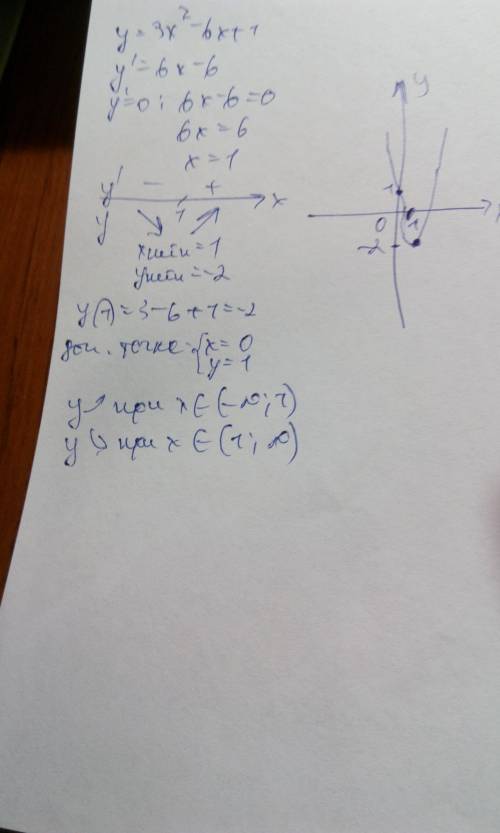 y = 3x² - 6x + 1
y' = 6x - 6
y' = 0; 6x - 6 = 0
6x = 6
x = 1
y' - + x
y 1
xмин = 1
yмин = -2
y(1) = 3 - 6 + 1 = -2
доп. точка: { x = 0
y = 1
y ↗ при x ∈ (-∞; 1)
y ↘ при x ∈ (1; ∞)
y
1
0 1
-2